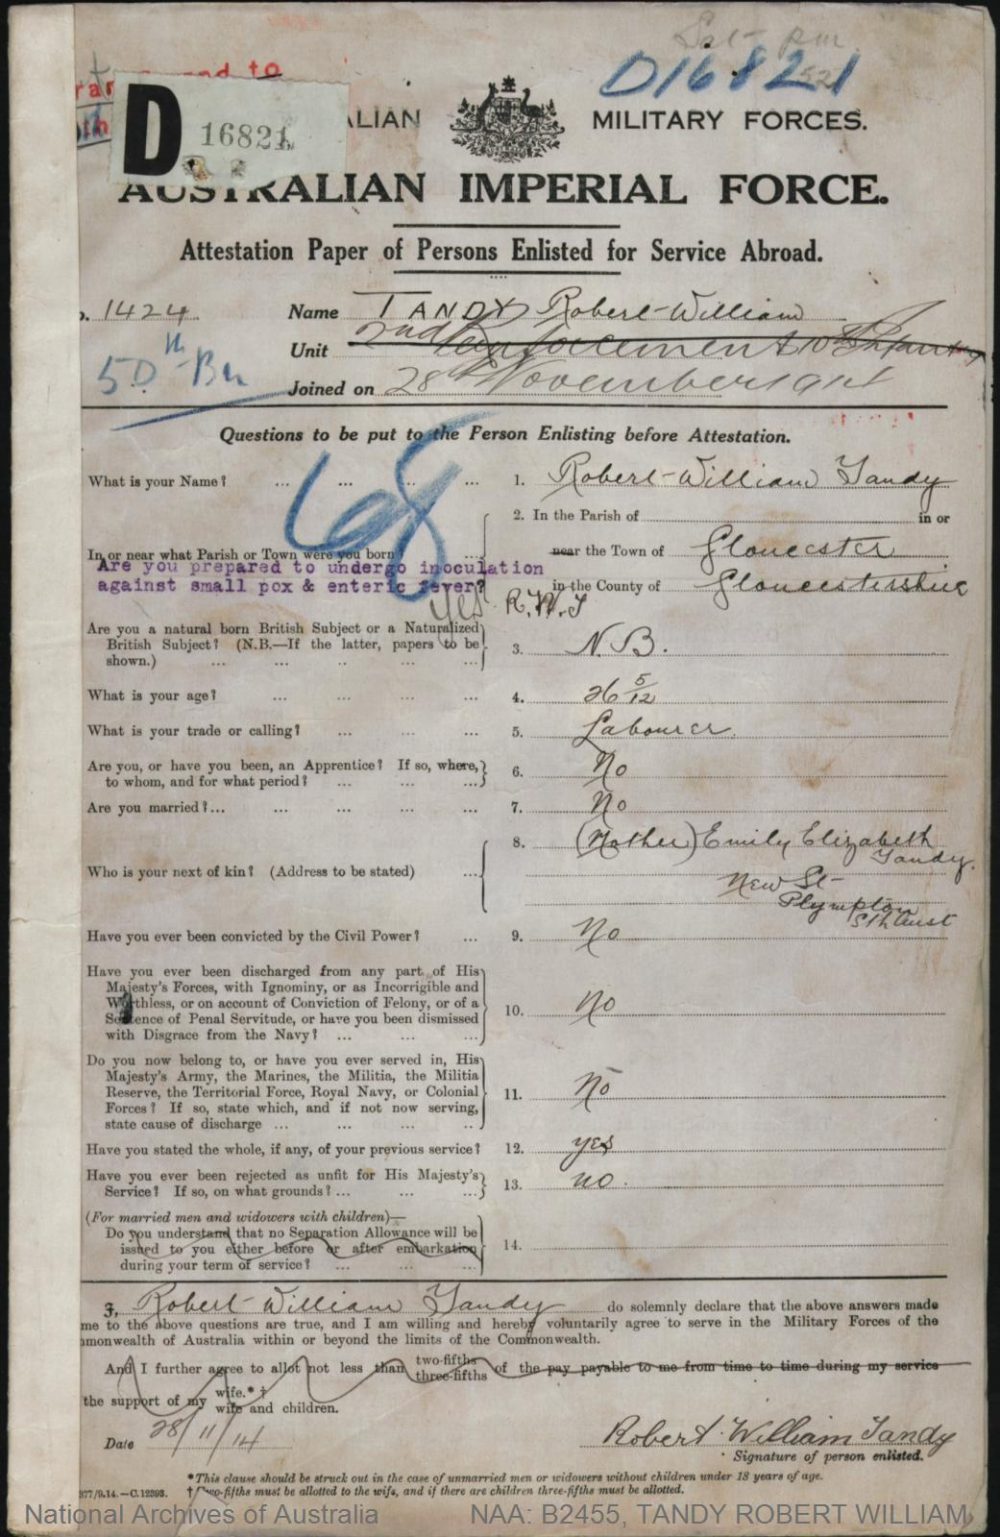 D16821
D 16821
ALIAN MILITARY FORCES.
AUSTRALIAN IMPERIAL FORCE.
Attestation Paper of Persons Enlisted for Service Abroad.
1424 Name TANDY Robert William
Unit 2nd Reinforcement 10th Infantry
50th Bn
Joined on 28th November 1914
Questions to be put to the Person Enlisting before Attestation.
68
What is your Name? ... ... ... ... 1. Robert William Tandy
2. In the Parish of in or
In or near what Parish or Town were you born? near the Town of Gloucester
Are you prepared to undergo inoculation
against small pox & enteric fever? in the County of Gloucestershire
Yes R.W.T
Are you a natural born British Subject or a Naturalized
British Subject? (N.B.—If the latter, papers to be 3. N.B.
shown.) ... ... .. ... ...
What is your age? ... ... ... ... 4. 26 5/12
What is your trade or calling? ... ... ... 5. Labourer
Are you, or have you been, an Apprentice? If so, where, 6. No
to whom, and for what period? ... ... ...
Are you married?... ... ... ... ... 7. No
8. (Mother) Emily Elizabeth
Tandy.
Who is your next of kin? (Address to be stated) ...
New St
Plympton
Sth Aust
Have you ever been convicted by the Civil Power? ... 9. No
Have you ever been discharged from any part of His
Majesty's Forces, with Ignominy, or as Incorrigible and
Worthless, or on account of Conviction of Felony, or of a 10. No
Sentence of Penal Servitude, or have you been dismissed
with Disgrace from the Navy? ... ... ...
Do you now belong to, or have you ever served in, His
Majesty's Army, the Marines, the Militia, the Militia
Reserve, the Territorial Force, Royal Navy, or Colonial 11. No
Forces? If so, state which, and if not now serving,
state cause of discharge ... ... ... ..
Have you stated the whole, if any, of your previous service? 12. yes
Have you ever been rejected as unfit for His Majesty's 13. no.
Service? If so, on what grounds? ... ... ...
(For married men and widowers with children)—
Do you understand that no Separation Allowance will be
issued to you either before or after embarkation 14.
during your term of service? ... ... ...
I, Robert William Tandy do solemnly declare that the above answers made
me to the above questions are true, and I am willing and hereby voluntarily agree to serve in the Military Forces of the
mmonwealth of Australia within or beyond the limits of the Commonwealth.
And I further agree to allot not less than two-fifths three-fifths of the pay payable to me from time to time during my service
the support of my wife.*† wife and children.
Date 28/11/14
Robert William Tandy
Signature of person enlisted.
*This clause should be struck out in the case of unmarried men or widowers without children under 18 years of age.
377/9.14.—C.12393. †Two-fifths must be allotted to the wife, and if there are children three-fifths must be allotted.
National Archives of Australia NAA: B2455, TANDY ROBERT WILLIAM